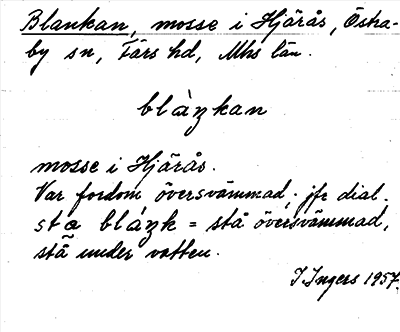 Blankan, mosse i Hjärås, Östra-
by sn, Färs hd, Mhs län.
blàŋkan
mosse i Hjärås.
Var fordom översvämmad; jfr dial.
blàŋk = stå översvämmad,
stå under vatten.
I. Ingers 1957.